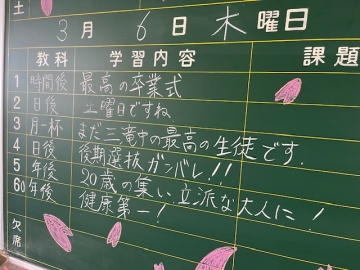 土
3月6日木曜日
教科 学習内容 課題
1 時間後 最高の卒業式
2 日後 土曜日ですね
3 月一杯 まだ三竜中の最高の生徒です.
4 日後 後期選抜ガンバレ!!
5 年後 20歳の集い 立派な大人に!
60年後 健康第一!
欠席